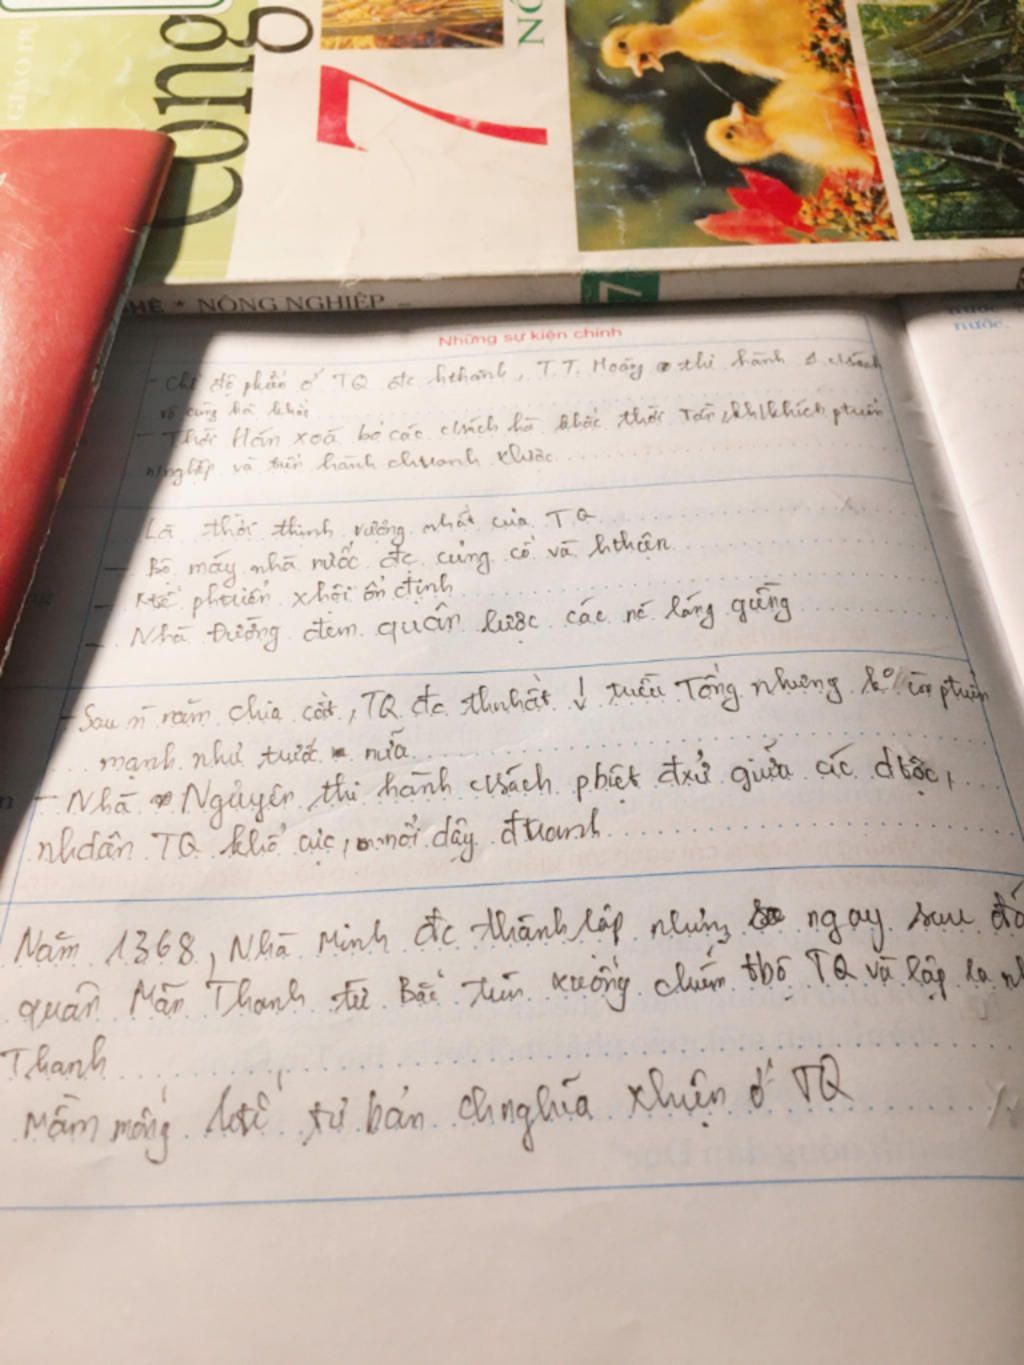 GIÁO DỤ
Công
7
NÔ
HỆ * NÔNG NGHIỆP –
7
nước.
Những sự kiện chính
- Chế độ pkiến ở TQ đc hthành, T.T. Hoàng thi hành csách
vô cùng hà khắc
- Thời Hán xoá bỏ các csách hà khắc thời Tần, khkhích ptriển
nnghiệp và tiến hành chtranh xlược
Là thời thịnh vượng nhất của TQ
- Bộ máy nhà nước đc củng cố và hthiện
- Ktế phtriển xhội ổn định
- Nhà Đường đem quân lược các nc láng giềng
- Sau n năm chia cắt, TQ đc thnhất ↓ triều Tống nhưng ko còn ptriển
mạnh như trước nữa
- Nhà Nguyên thi hành csách phbiệt đxử giữa các dtộc,
nhdân TQ khổ cực, nổi dậy đtranh
Năm 1368, Nhà Minh đc thành lập nhưng ngay sau đó
quân Mãn Thanh từ Bắc tiến xuống chiếm tbộ TQ và lập ra nh
Thanh
Mầm mống ktế tư bản chnghĩa xhiện ở TQ